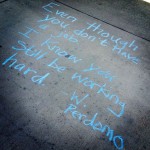 Even though
you don't have
I know you
Still be working
hard w/
Perdomo